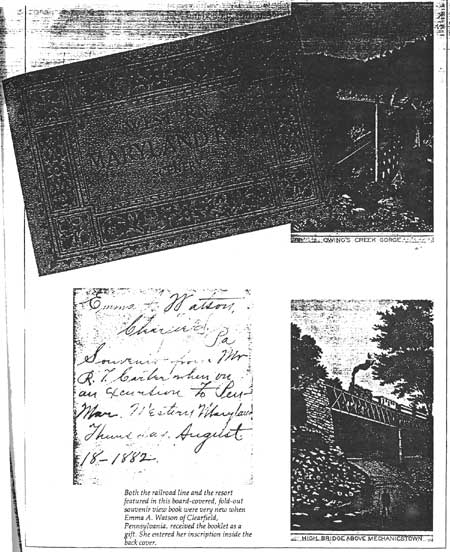 WESTERN
MARYLAND R.R.
OWING'S CREEK GORGE
Emma A. Watson,
Pa
Souvenir from Mr
R. T. Carter when on
an excursion to Pen-
Mar. Western Maryland
Thursday. August
18-1882.
HIGH BRIDGE ABOVE MECHANICSTOWN.
Both the railroad line and the resort
featured in this board-covered, fold-out
souvenir view book were very new when
Emma A. Watson of Clearfield,
Pennsylvania, received the booklet as a
gift. She entered her inscription inside the
back cover.